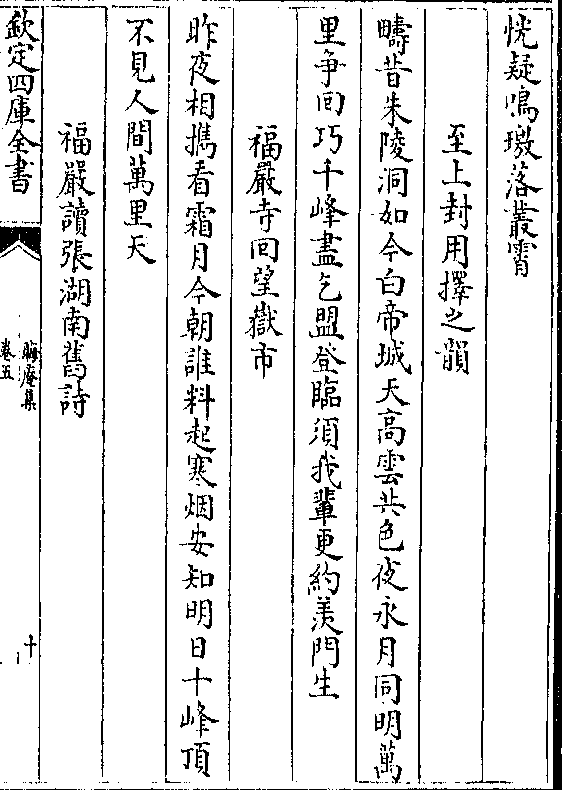 恍疑鳴璬落叢霄
至上封用擇之韻
疇昔朱陵洞如今白帝城天高雲共色夜永月同明萬
里爭回巧千峰盡乞盟登臨須我輩更約羨門生
福嚴寺回望嶽市
昨夜相攜看霜月今朝誰料起寒烟安知明日千峰頂
不見人間萬里天
福嚴讀張湖南舊詩
欽定四庫全書
晦庵集
卷五
十